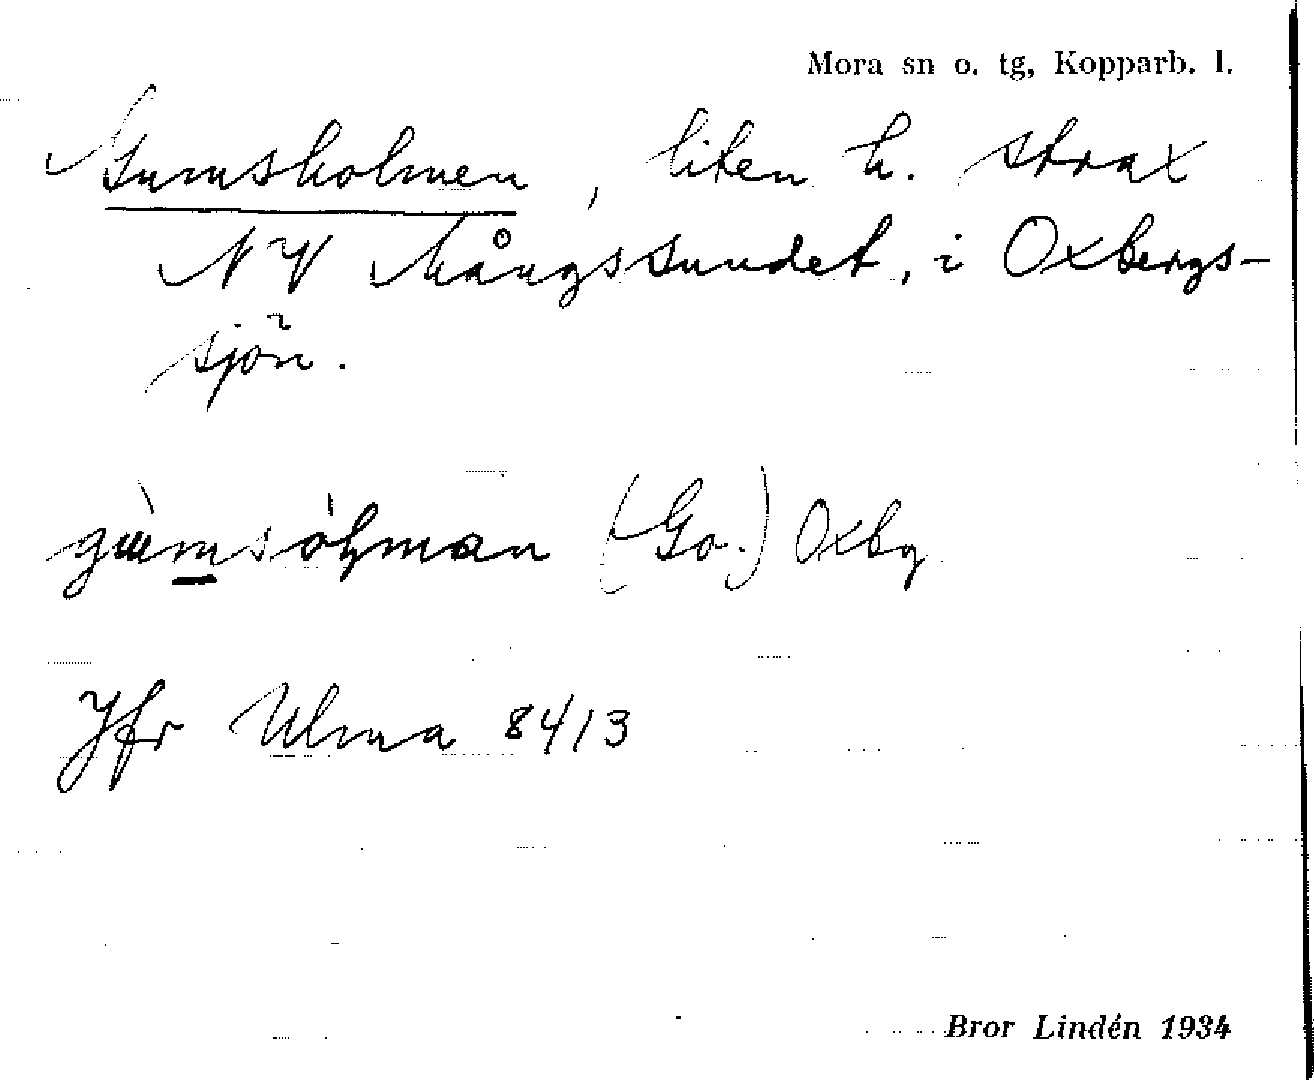 Mora sn o. tg, Kopparb. l.
Gumsholmen, liten h. strax
NV Mångssundet, i Oxbergs-
sjön.
(Go.) Oxbg
Jfr Ulma 8413
Bror Lindén 1934